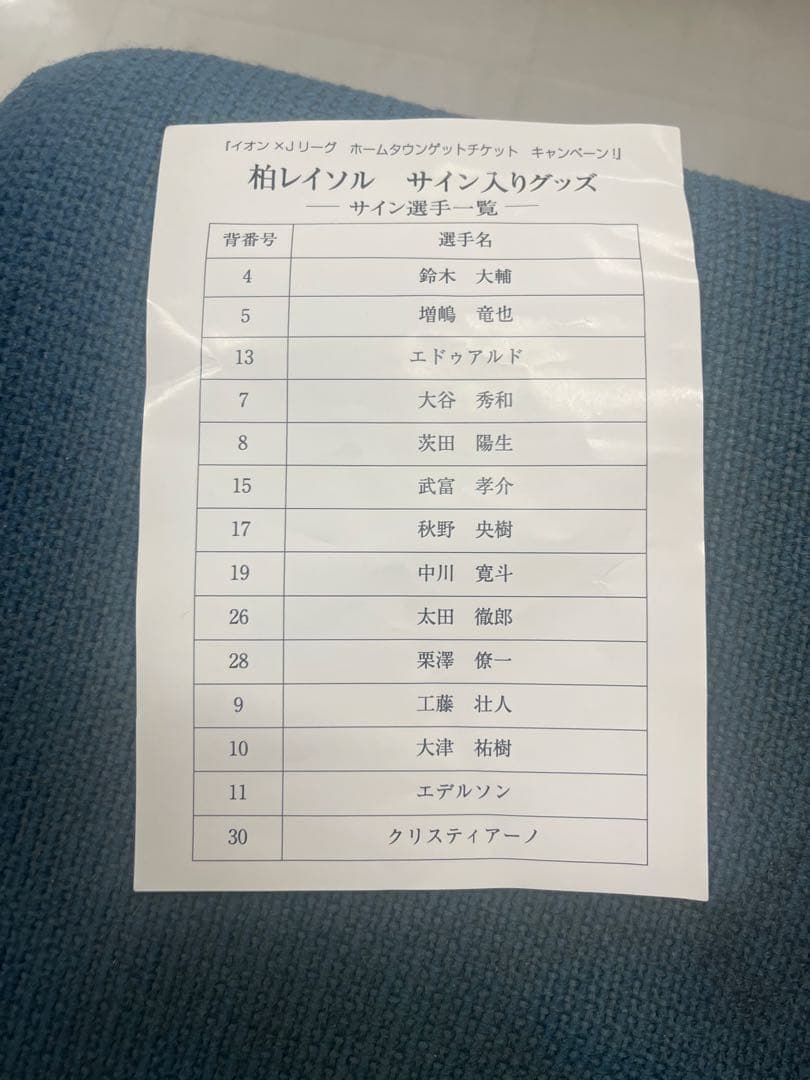 『イオン×Jリーグ　ホームタウンゲットチケット　キャンペーン!』
柏レイソル　サイン入りグッズ
― サイン選手一覧 ―
背番号　選手名
4　鈴木　大輔
5　増嶋　竜也
13　エドゥアルド
7　大谷　秀和
8　茨田　陽生
15　武富　孝介
17　秋野　央樹
19　中川　寛斗
26　太田　徹郎
28　栗澤　僚一
9　工藤　壮人
10　大津　祐樹
11　エデルソン
30　クリスティアーノ